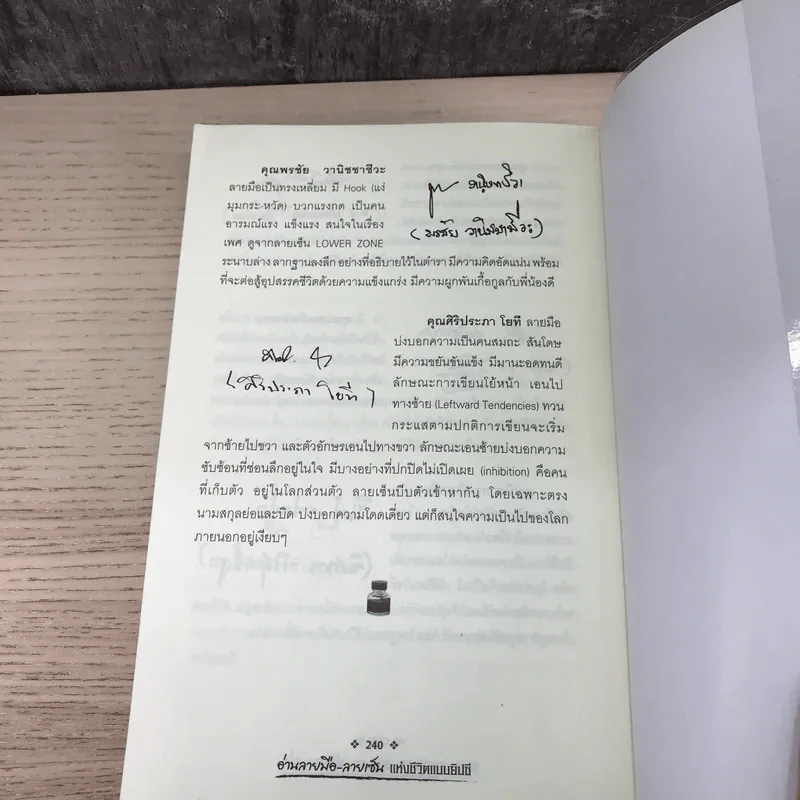 คุณพรชัย วานิชชาชีวะ
ลายมือเป็นทรงเหลี่ยม มี Hook (แง่
มุมกระ-หวัด) บวกแรงกด เป็นคน
อารมณ์แรง แข็งแรง สนใจในเรื่อง
เพศ ดูจากลายเซ็น LOWER ZONE
(พรชัย วานิชชาชีวะ)
ระนาบล่าง ลากฐานลงลึก อย่างที่อธิบายไว้ในตำรา มีความคิดอัดแน่น พร้อม
ที่จะต่อสู้อุปสรรคชีวิตด้วยความแข็งแกร่ง มีความผูกพันเกื้อกูลกับพี่น้องดี
คุณศิริประภา โยที ลายมือ
บ่งบอกความเป็นคนสมถะ สันโดษ
มีความขยันขันแข็ง มีมานะอดทนดี
ลักษณะการเขียนโย้หน้า เอนไป
ทางซ้าย (Leftward Tendencies) ทวน
กระแสตามปกติการเขียนจะเริ่ม
(ศิริประภา โยที)
จากซ้ายไปขวา และตัวอักษรเอนไปทางขวา ลักษณะเอนซ้ายบ่งบอกความ
ซับซ้อนที่ซ่อนลึกอยู่ในใจ มีบางอย่างที่ปกปิดไม่เปิดเผย (inhibition) คือคน
ที่เก็บตัว อยู่ในโลกส่วนตัว ลายเซ็นบีบตัวเข้าหากัน โดยเฉพาะตรง
นามสกุลย่อและบิด บ่งบอกความโดดเดี่ยว แต่ก็สนใจความเป็นไปของโลก
ภายนอกอยู่เงียบๆ
❖ 240 ❖
อ่านลายมือ-ลายเซ็น แห่งชีวิตแบบยิปซี